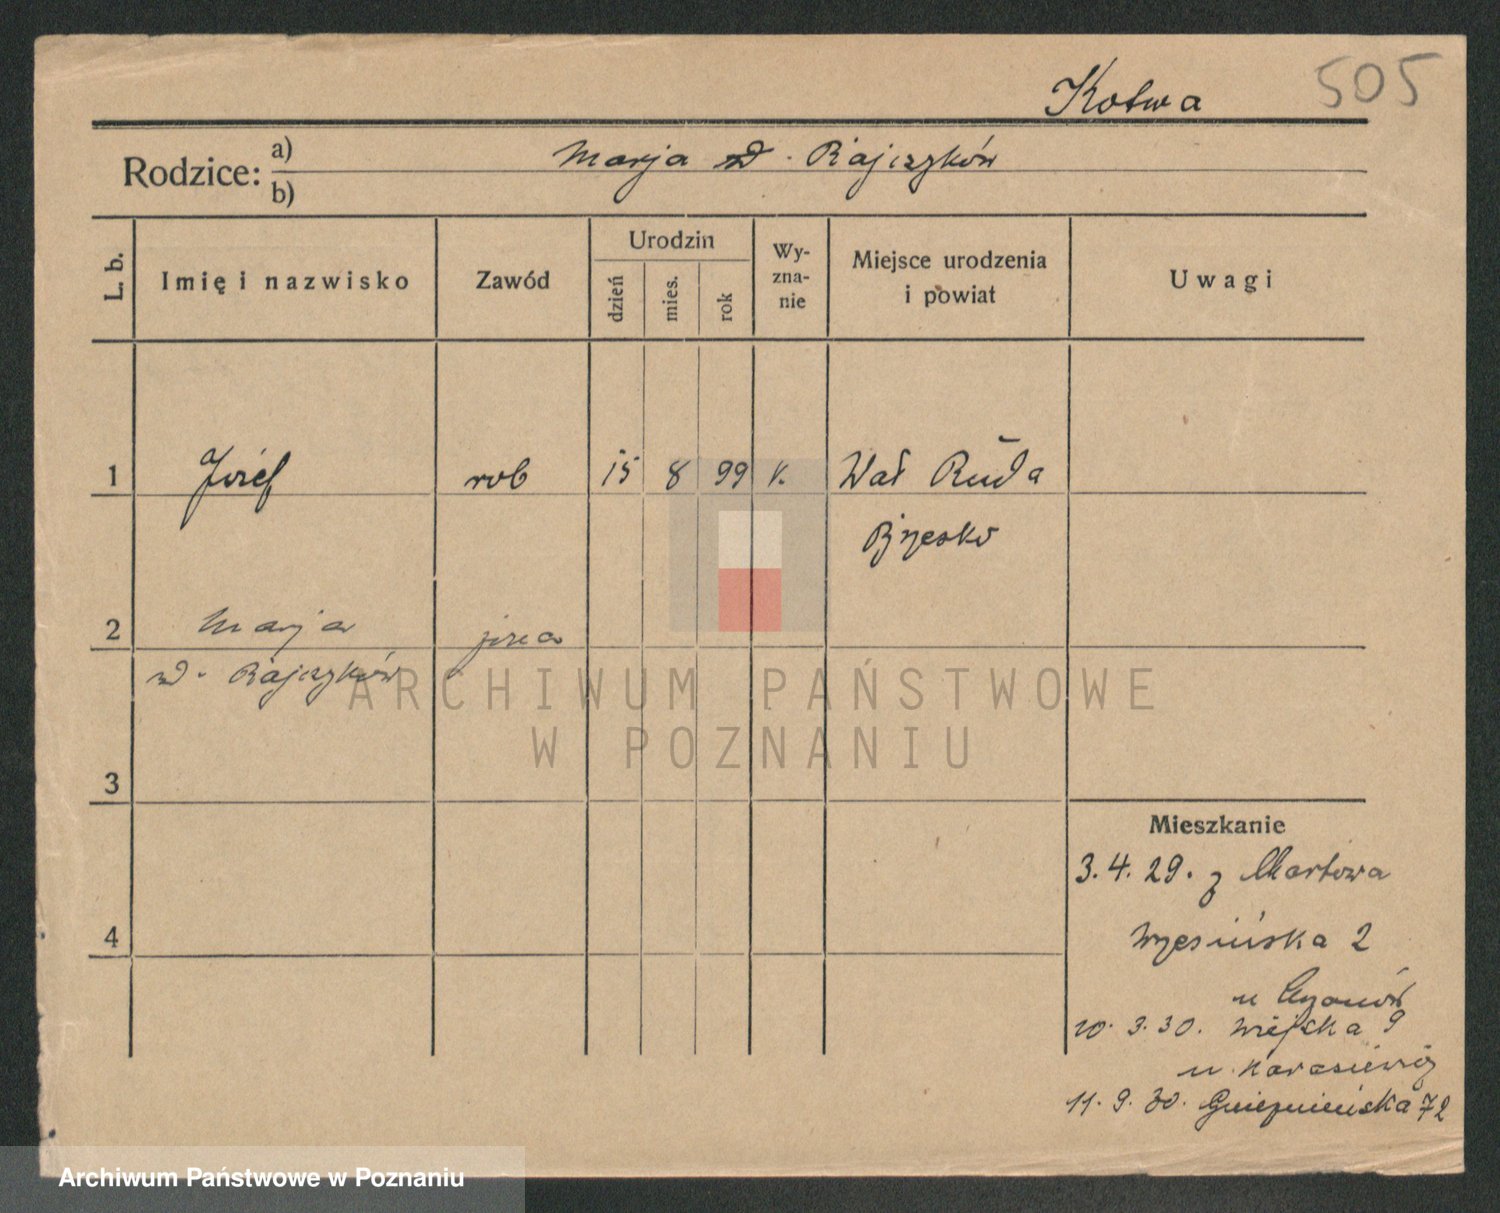 505
Kotwa
Rodzice: a) b)
Marja z d. Rajczyków
L. b.
Imię i nazwisko
Zawód
Urodzin
dzień
mies.
rok
Wy-
zna-
nie
Miejsce urodzenia
i powiat
Uwagi
1 Józef rob 15 8 99 k. Wał Ruda
Brzesko
2 Marja
z d. Rajczyków
3
4
Mieszkanie
3.4.29. z
Wrzesińska 2
u
10.3.30. Wiejska 9
u Karasiewicz
11.9.30. Gnieźnieńska 72
ARCHIWUM PAŃSTWOWE
W POZNANIU
Archiwum Państwowe w Poznaniu